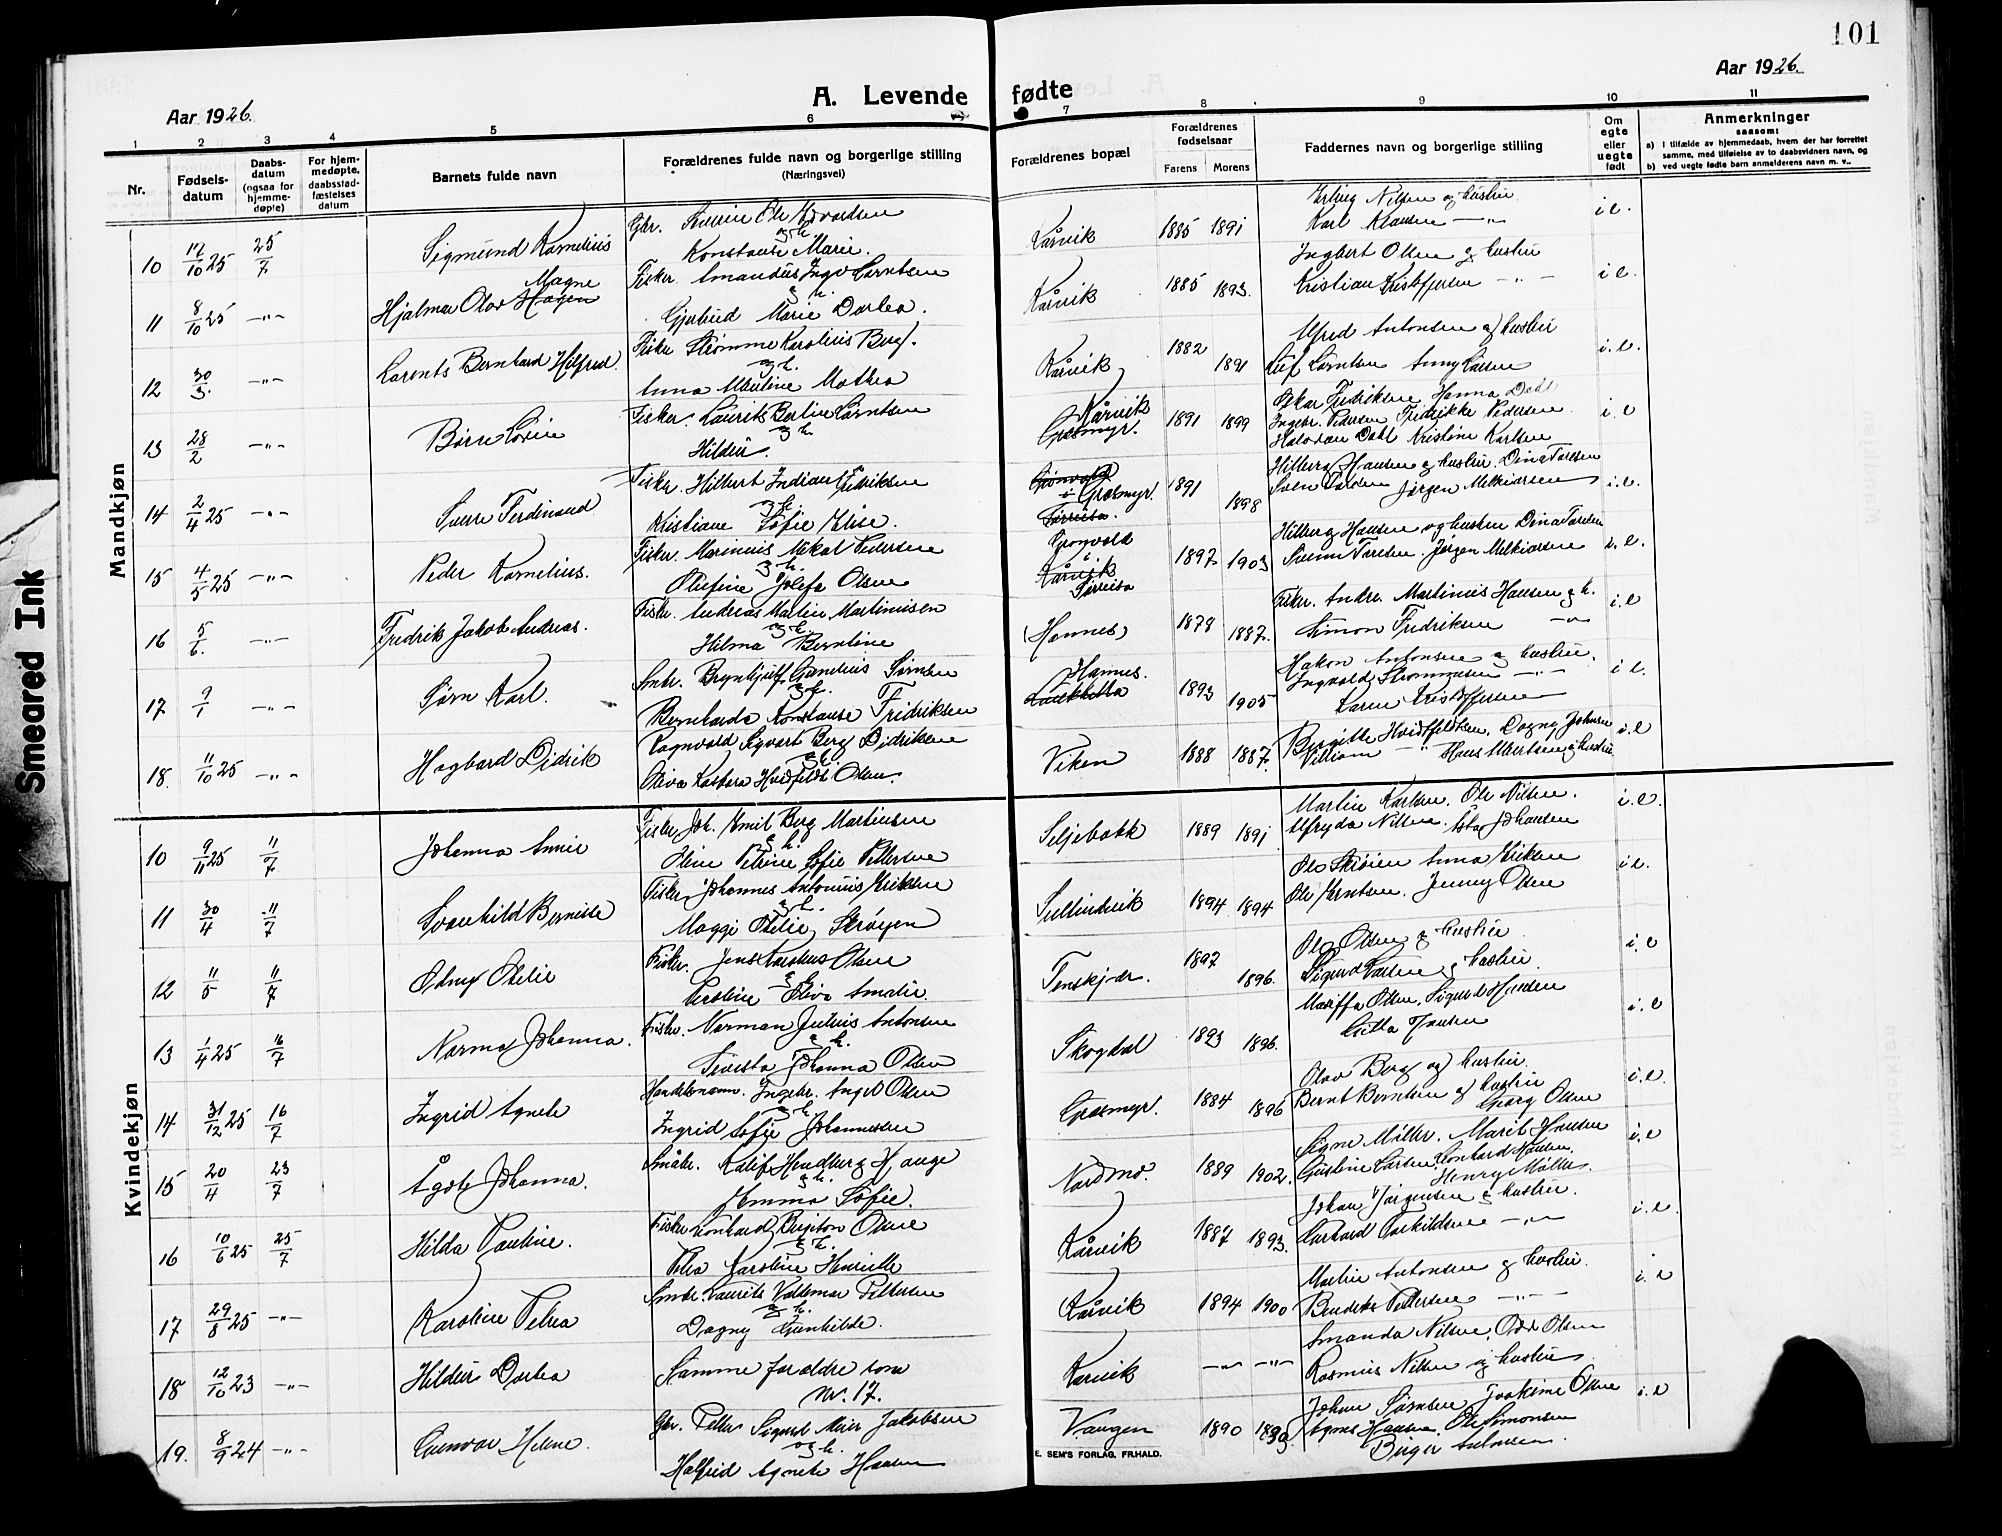 101
Aar 1926.
A. Levende fødte
Aar 1926.
1 2 3 4 5 6 7 8 9 10 11
Nr.
Fødsels-datum
Daabs-datum (ogsaa for hjemme-døpte)
For hjem-medøpte, daabsstad-fæstelses datum
Barnets fulde navn
Forældrenes fulde navn og borgerlige stilling
(Næringsvei)
Forældrenes bopæl
Forældrenes fødselsaar
Farens Morens
Faddernes navn og borgerlige stilling
Om egte eller uegte født
Anmerkninger
saasom:
a) I tilfælde av hjemmedaab, hvem der har forrettet samme, med tilføielse av to daabsvidners navn, og
b) ved uegte fødte barn anmelderens navn m. v..
Mandkjøn
10 12/10 25 25/7 Sigmund Kornelius
Konstanse Marie.
Kårvik 1885 1891
Erling Nilsen og hustru
Karl Klausen —"— i e.
11 8/10 25 —"— Hjalmar Olav Hagen Magne
Fisker.
Marie Dortea.
Kårvik 1885 1893.
Ingbert Olsen og hustru
Kristian Kristoffersen —"— i e.
12 30/3. —"— Larents Bernhard Hilfred.
Fisker Strømme Karolius Berg.
og h.
Anna Mathea
Kårvik 1882 1891
Alfred Antonsen og hustru
i. e.
13 28/2 —"—
Fisker. Laurits Berlin Larntsen
og h.
Kårvik
Græsmyr. 1891 1899
Oskar Fredriksen Hanna Dahl
Ingebr. Pedersen Fredrikke Pedersen
Halvdan Dahl Kristine Karlsen i. e
14 2/4 25 —"— Sverre Ferdinand
Fisker. Hilbert Indian Fredriksen
og h.
Kristiane Sofie Elise.
Græsmyr. 1891 1898
Hilberg Hansen og hustru. Dina Toresen
Jørgen Melkiorsen i. e.
15 4/5 25 —"— Peder Kornelius.
Fisker. Marinius Mikal Pedersen
og h.
Olufine Josefa Olsen
Grønvold
i
Kårvik
Sørreisa 1897 1903
Hilberg Hansen og hustru Dina Toresen
Jørgen Melkiorsen i. e.
16 5/6. —"— Fredrik Jakob Andreas.
Fisker. Andreas Martin Martinusen
og h.
Hilma Berntine
(Hannes) 1878 1887.
Fisker. Andr. Martinius Hansen og h.
Simon Fredriksen —"— i. e
17 9/1 —"— Sørn Karl.
Smbr. Brynhjulf Sørnsen
og h.
Bernharda Konstanse Fridriksen
Hannes. 1893 1905
Hakon Antonsen og hustru.
Ingvald Strømmesen —"—
Karen Kristoffersen i e.
18. 11/10 25 —"— Hagbard Didrik
Ragnvald Sigvart Berg Didriksen
og h.
Oliva Barbara Hvidfeldt Olsen.
Viken 1888 1887.
Birgitte Hvidtfeldtsen. Dagny Johnsen
Villiam —"— Hans Albertsen og hustru i e
Kvindekjøn
10 9/11 25 11/7 Johanna Annie
Fisker Joh. Emil Berg Martinsen
og h.
Oline Petrine Sofie Pettersen
Seljebakk 1889 1891
Martin Karlsen. Ole Nilsen.
Alfryda Nilsen. Johansen i. e.
11 30/4 11/7 Svanhild
Fisker Johannes Antonius Eriksen
og h.
Maggi Otelie Skrøyen
1894 1894
Anna Eriksen
Jenny Olsen i e.
12 11/5 11/7 Odny Otelie
Fisker. Olsen
og h.
Oliva Amalie.
Tenskjær. 1897 1896.
Olsen og hustru
Sigurd Larsen og hustru. i. e
13 1/4 25 16/7 Norma Johanna.
Fisker. Norman Julius Antonsen
og h.
Johanna Olsen
Skogdal 1893 1896.
Olsen. Sigurd Hansen
Gitta Hansen i. e
14 31/12 25 16/7 Ingrid Agnete
Handelsmann. Ingebr. Angel Olsen
og h.
Ingrid Sofie Johannessen
Græsmyr. 1884 1896
Olav Berg og hustru.
Bernt Berntsen og hustru
Georg Olsen i. e.
15 20/4 23/7 Ågot Johanna.
Småbr. Hauge
og h.
Emma Sofie.
Nordmo. 1889 1902.
Signe Møller. Marit Hansen
Gustine Larsen. Konrad Hansen.
Henry Møller. i. e
16 10/6 25 25/7 Hilda Pauline.
Fisker Leonhard Olsen
og h.
Petra Karoline Henriette
Kårvik 1887 1893.
Johan Jørgensen og hustru.
Gerhard Torkildsen —"— i. e.
17 29/8 25 —"— Karoline Petrea
Smbr. Laurits Valdemar Pettersen
og h.
Dagny Gunhilde.
Kårvik 1894 1900
Martin Antonsen og hustru.
Pettersen —"— i. e
18 12/10 23 —"— Hildur Dortea
Samme forældre som
nr. 17.
Kårvik —"— —"—
Amanda Nilsen, Odd Olsen
Rasmus Nilsen og hustru.
19. 8/9 24 —"— Gunvor Helene.
Gbr. Petter Sigurd Meier Jakobsen
og h.
Halfrid Agnete Hansen
Vangen 1890
Johan Sørnsen Joakime Olsen
Agnes Hansen. Ole Simonsen
Birger Antonsen. i. e
E. SEM'S FORLAG, FR.HALD.
Smeared Ink